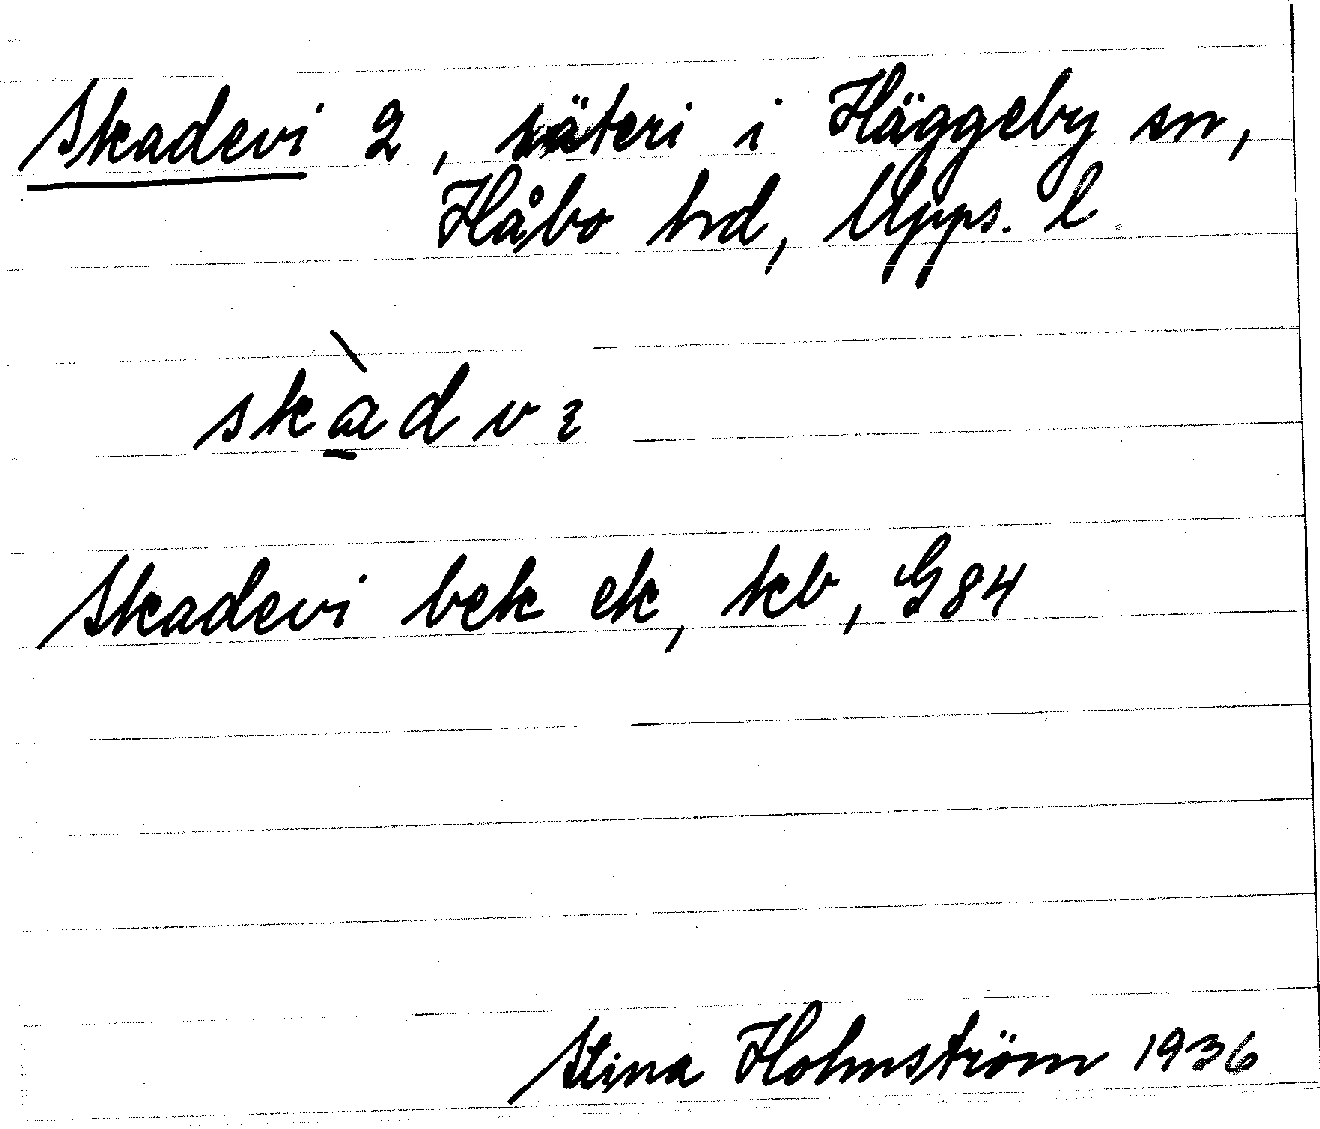 Skadevi 2, säteri i Häggeby sn,
Håbo hrd, Upps. l.
skàdvɩ
Skadevi bek ek, kb, G84
Stina Holmström 1936